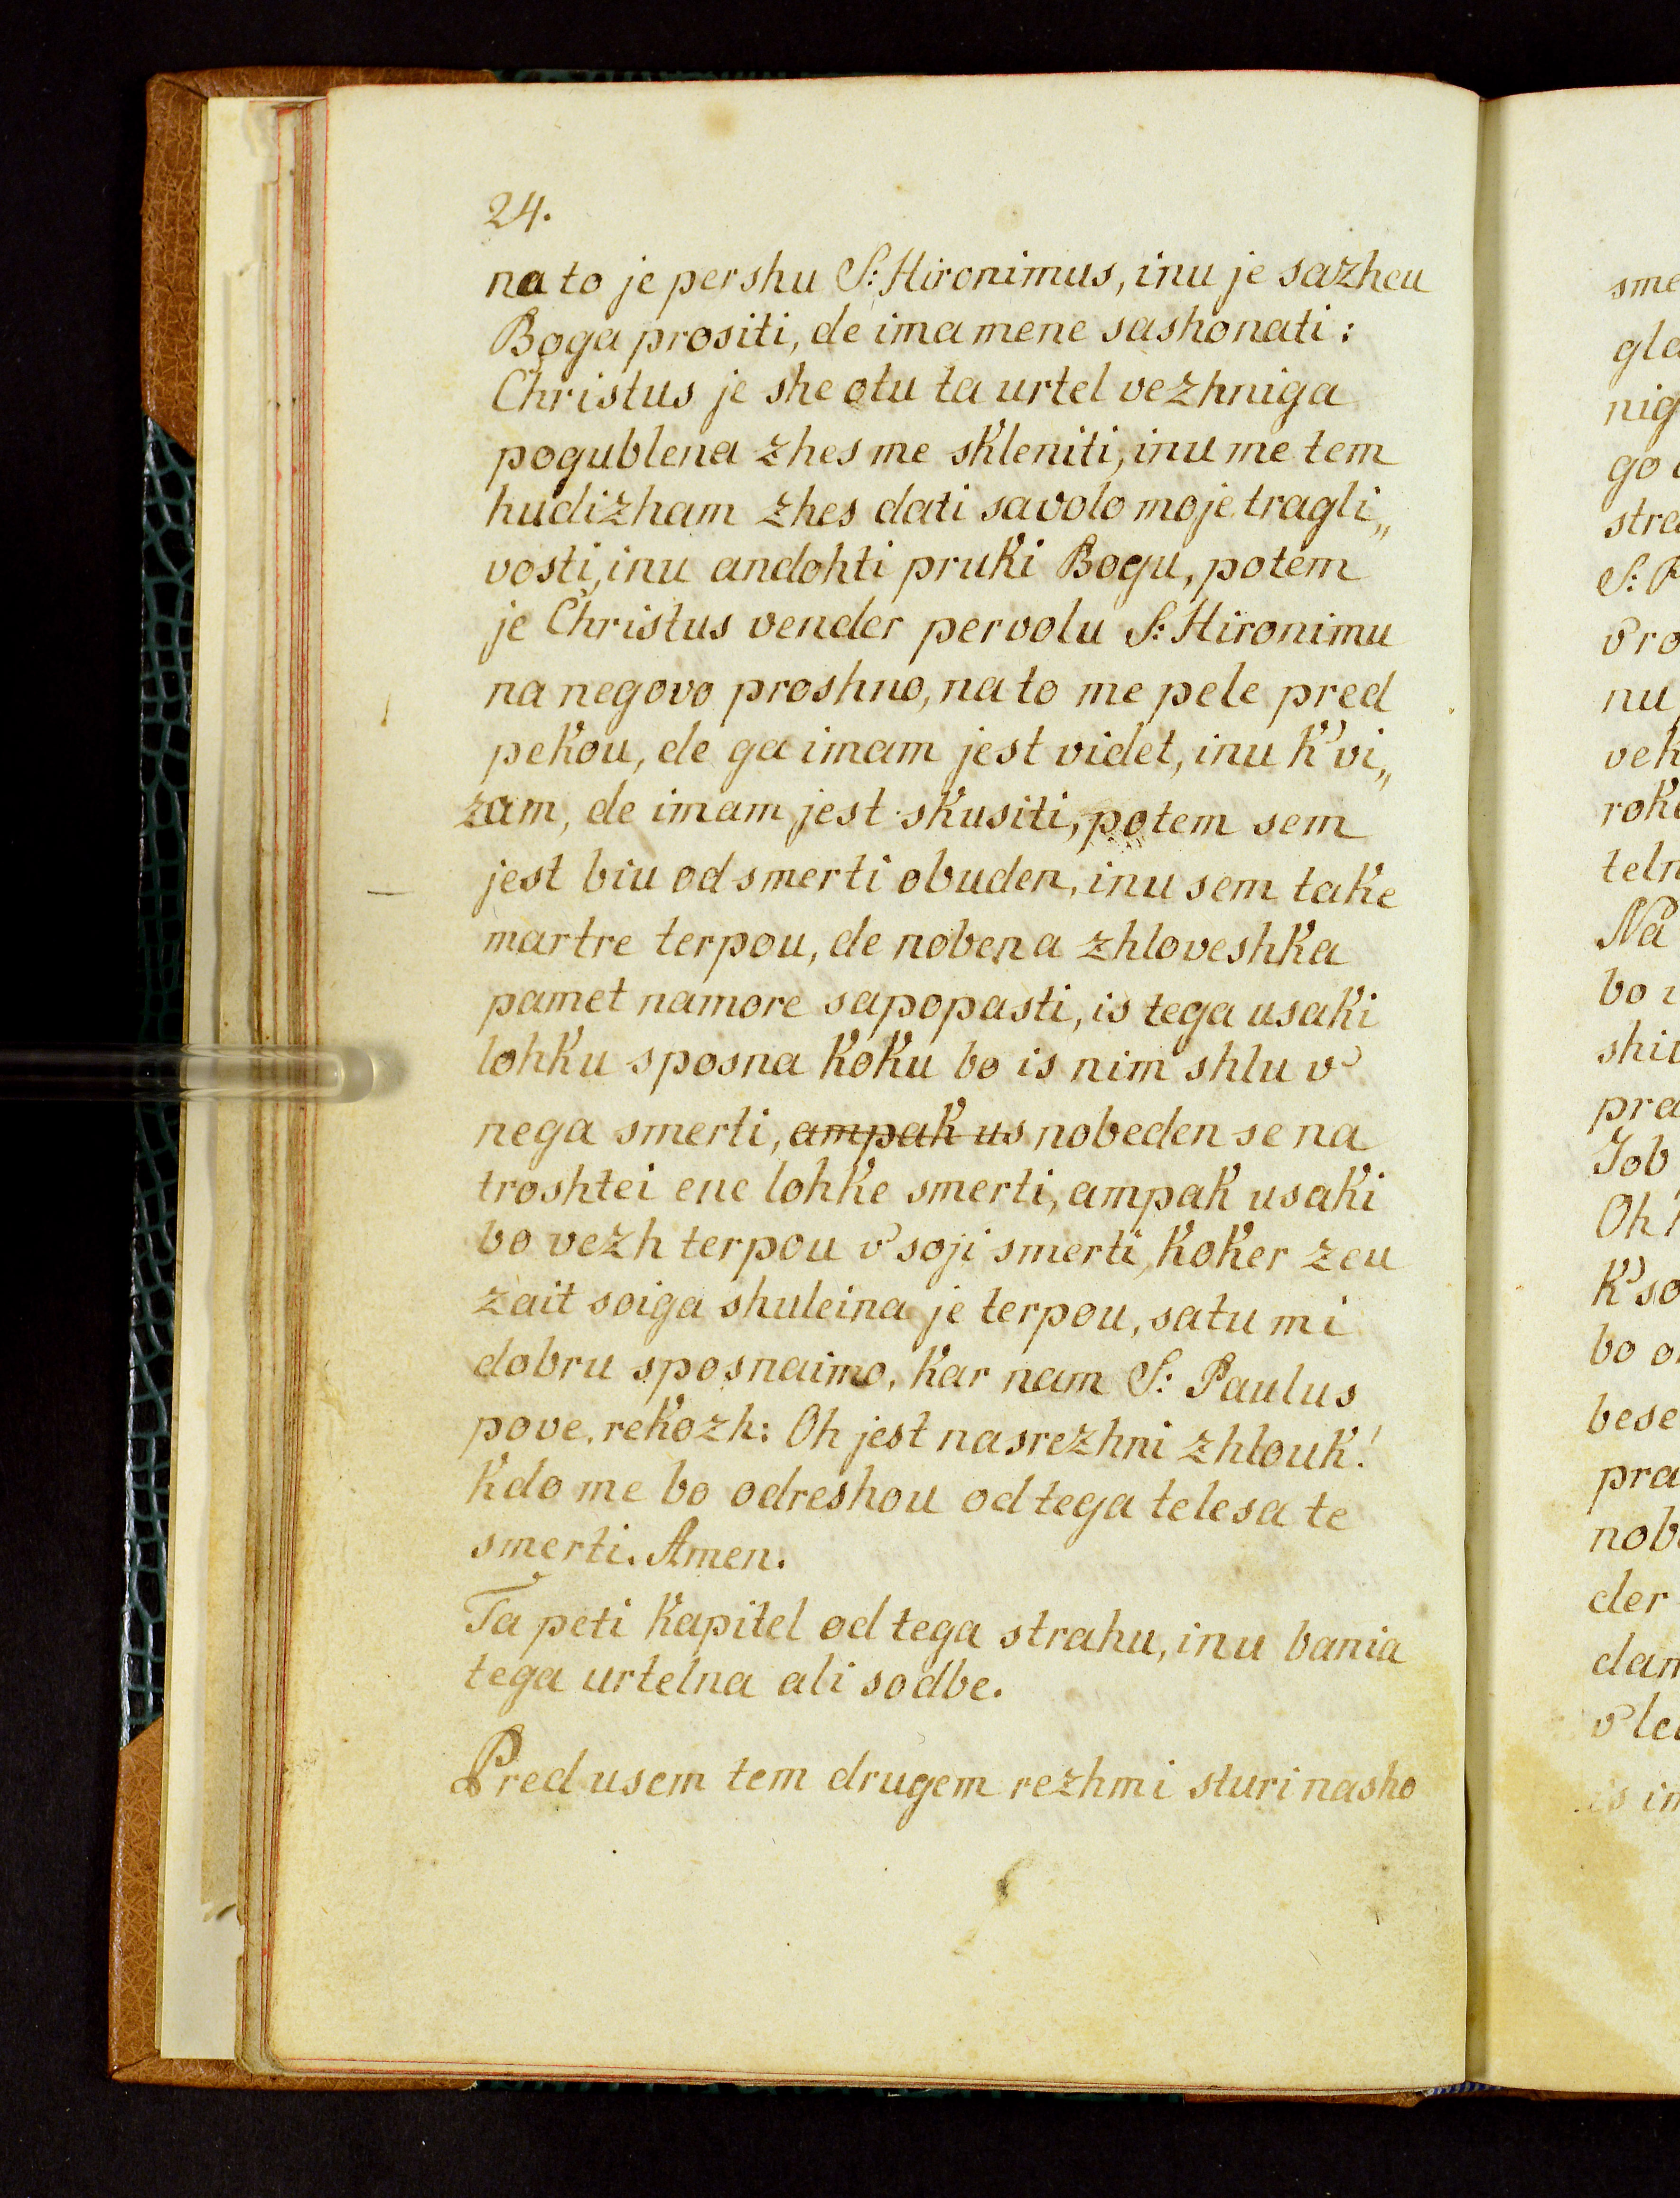 24.
na to je pershu S: Hironimus, inu je sazheu
Boga prositi, de ima mene sashonati:
Christus je she otu ta urtel vezhniga
pogublena zhes me skleniti, inu me tem
hudizham zhes dati savolo moje tragli„
vosti, inu andohti pruki Bogu, potem
je Christus vender pervolu S: Hironimu
na negovo proshno, na to me pele pred
pekou, de ga imam jest videt, inu k' vi„
zam, de imam jest skusiti, potem sem
jest biu od smerti obuden, inu sem take
martre terpou, de nobena zhloveshka
pamet namore sapopasti, is tega usaki
lohku sposna koku bo is nim shlu v'
nega smerti, ampak us nobeden se na
troshtei ene lohke smerti, ampak usaki
bo vezh terpou v' soji smerti, koker zeu
zait soiga shuleina je terpou, satu mi
dobru sposnaimo, kar nam S: Paulus
pove, rekozh: Oh jest nasrezhni zhlouk!
kdo me bo odreshou od tega telesa te
smerti. Amen.
Ta peti kapitel od tega strahu, inu bania
tega urtelna ali sodbe.
Pred usem tem drugem rezhmi sturi nasho
sme
gle
nig
go
stra
S:
v' ro
nu
vek
rok
teln
Na
bo
shi
pra
Job
Oh
k' so
bo o
bese
pra
nob
der
dan
v' le
is in